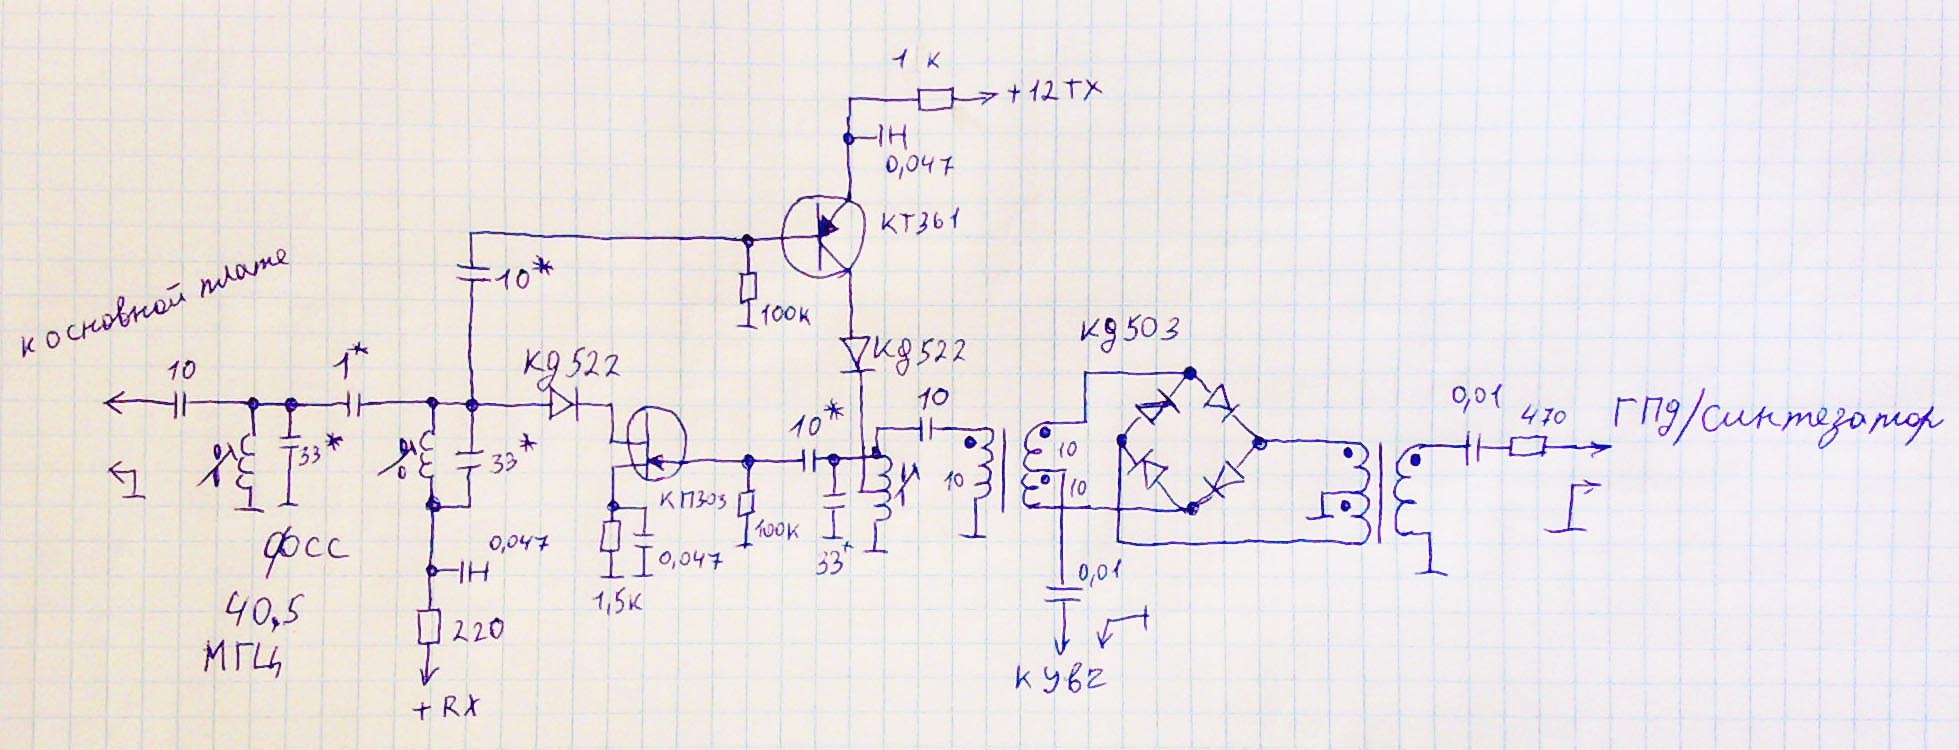 1 К
+12TX
0,047
КТ361
10*
100К
к основной плате
10
1*
КД522
КД522
КД503
10
10*
33*
33*
КП303
100К
33*
10
10
10
0,01
470
ГПД/синтезатор
ФОСС
40,5
МГЦ
0,047
220
+RX
1,5К
0,047
0,01
К УВЧ